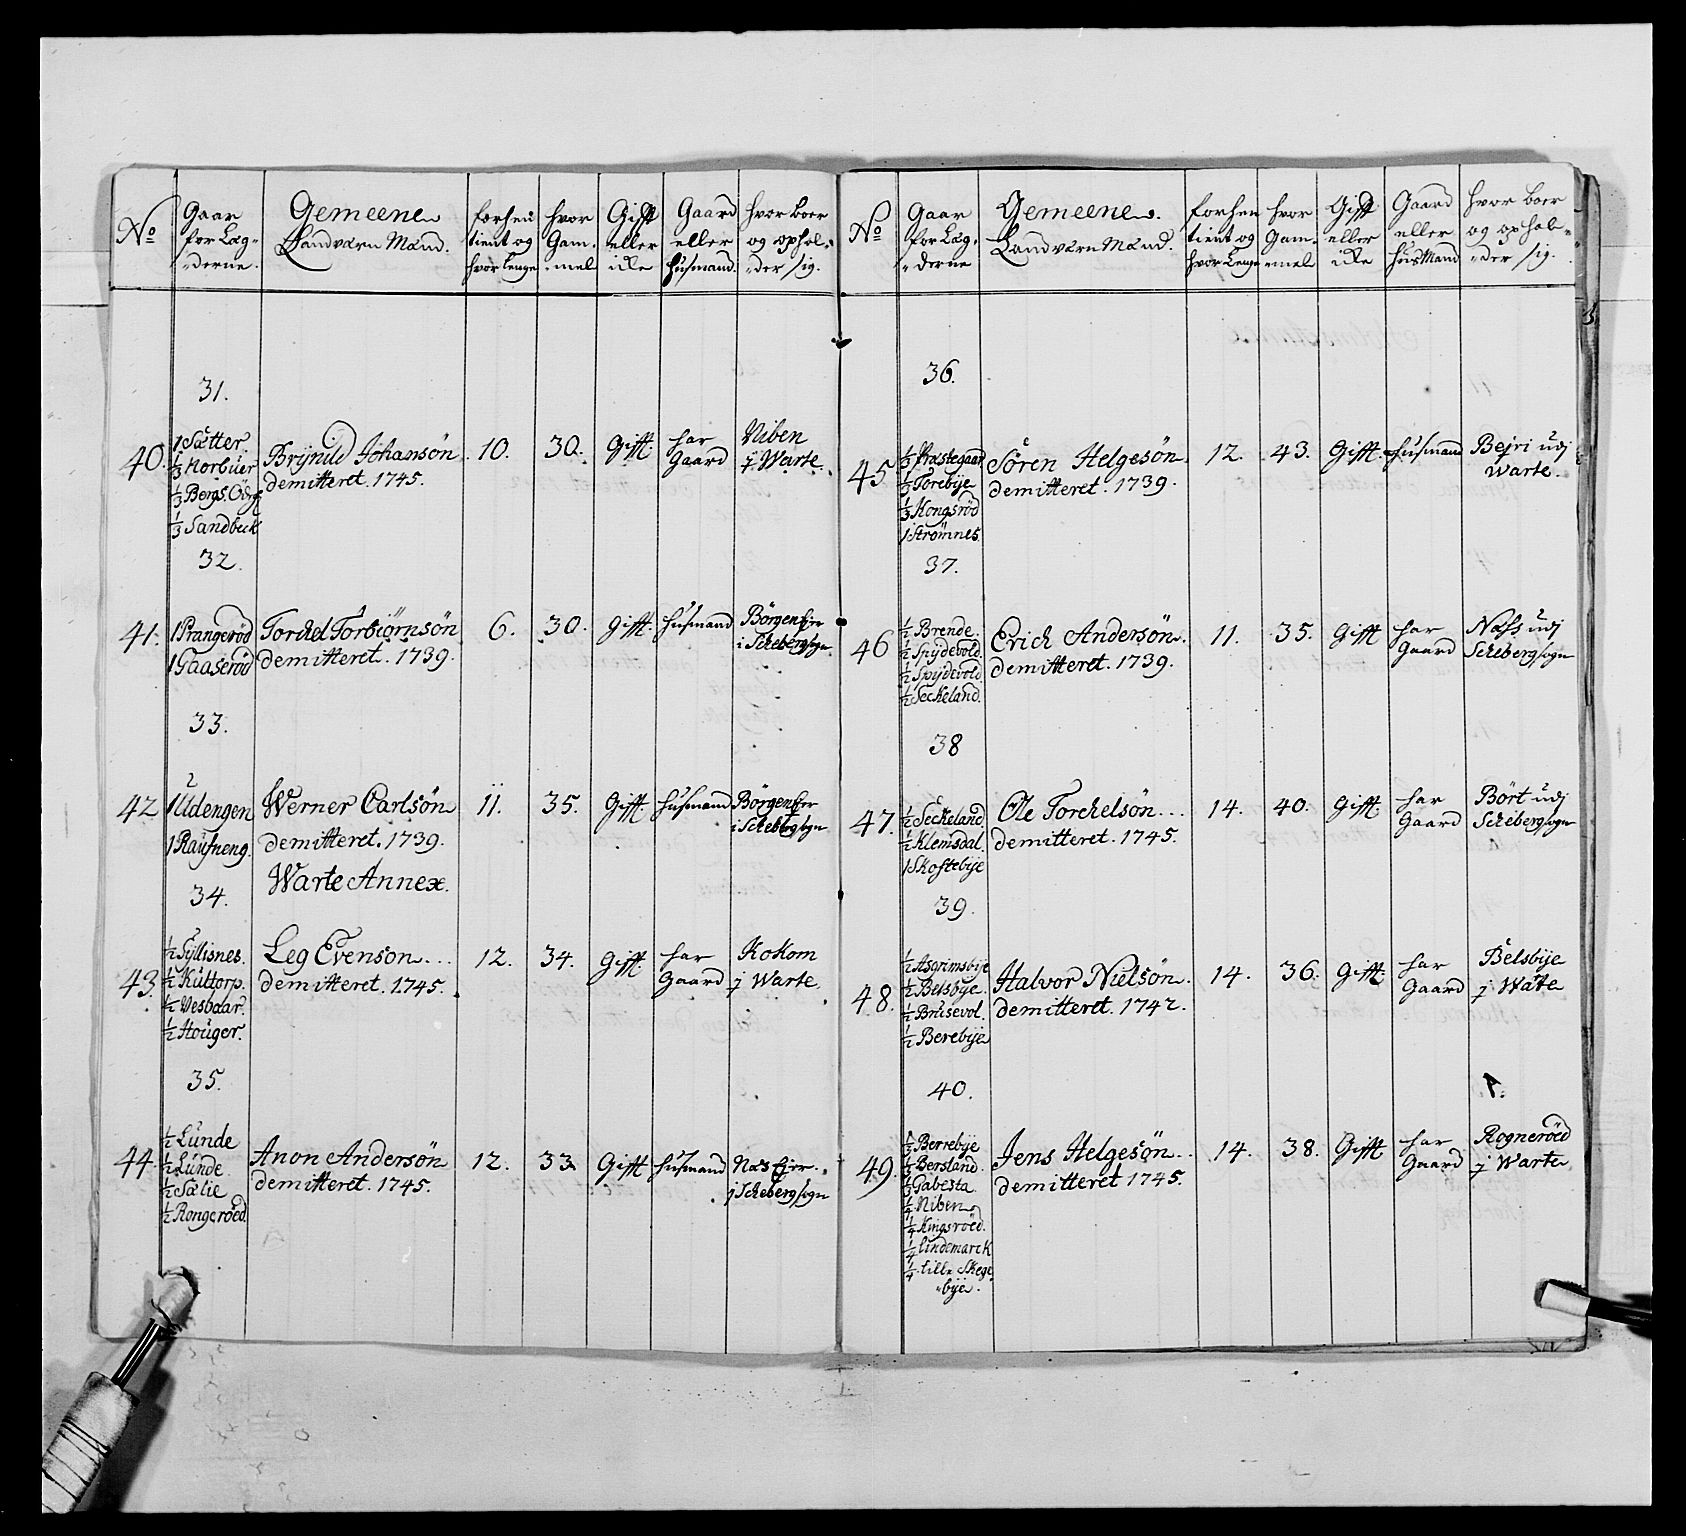 No
Gaar
for Læg-
-derne.
Gemeene
Landværn Mænd.
forhen
tient og
hvor længe
hvor
Gam-
-mel
Gifft
eller
icke
Gaard
eller
Husmand.
hvor boer
og ophol-
-der sig.
31.
40.
1 Sætter
1/3 Korbüer
1/3 Bergs.
1/3 Sandbeck
Brÿnild Johansön
demitteret. 1745.
10.
30.
Gifft
har
Gaard
Niben
j Warte.
32.
41.
1 Prangeröd
1 Gaaseröd
Torckel Torbiörnsön
demitteret. 1739.
6.
30.
Gifft
Husmand
Börgen Eÿer
i Schebergsogn
33.
42
1 Udengen
1 Raüfneng.
Werner Carlsön
demitteret. 1739.
11.
35.
Gifft
Husmand
Börgen Eÿer
i Schebergsogn
Warte Annex.
34.
43.
1/2 Tÿllisnes.
1/2 Kültorp.
1/2 Vesbaar.
1/2 Houger.
Leg Evenson...
demitteret. 1745.
12.
34.
Gifft
har
Gaard
Kokom
j Warte.
35.
44.
1/2 Lünde
1/2 Lünde.
1/2 Sælie
1/2 Rongeröed
Anon Andersön
demitteret. 1745.
12.
33.
Gifft
Husmand
Næs Eÿer.
j Schebergsogn
No
Gaar
for Læg-
-derne
Gemeene.
Landværn Mænd.
forhen
tient og
hvor Længe
hvor
Gam-
-mel
Gifft
eller
icke
Gaard
eller
HüsMand
hvor boer
og ophol-
-der sig.
36.
45.
1/3 Præstegaar
1/3 Torebÿe
1/3 Kongsröd
1 Strömnes.
Sören Helgesön
demitteret. 1739.
12.
43.
Gifft
Husmand
Bejri udj
Warte.
37.
46
1/2 Brende.
1/2 Spÿdevold
1/2 Spÿdevold.
1/2 Seckeland.
Erich Andersön.
demitteret. 1739.
11.
35.
Gifft
har
Gaard
Næss udj
Schebergsogn
38
47.
1/2 Seckeland
1/2 Klemsdal.
1 Skoftebÿe
Ole Torchelsön...
demitteret. 1745.
14.
40.
Gifft.
har
Gaard
Bört udj
Schebergsogn
39.
48.
1/2 Asgrimsbÿe
1/2 Belsbÿe.
1/2 Brüsevol.
1/2 Berebÿe
Halvor Nielsön.
demitteret. 1742.
14.
36.
Gifft
har
Gaard
Belsbÿe
j Wate
40.
49.
1/3 Berrebÿe
1/3 Bersland.
1/3 Gabesta.
1/4 Niben
1/4 Kingsröed.
1/4 Lindemarck
1/4 Lille Skege-
-bÿe.
Jens Helgesön..
demitteret 1745.
14.
38.
Gifft
har
Gaard
Rogneröed
j Warte